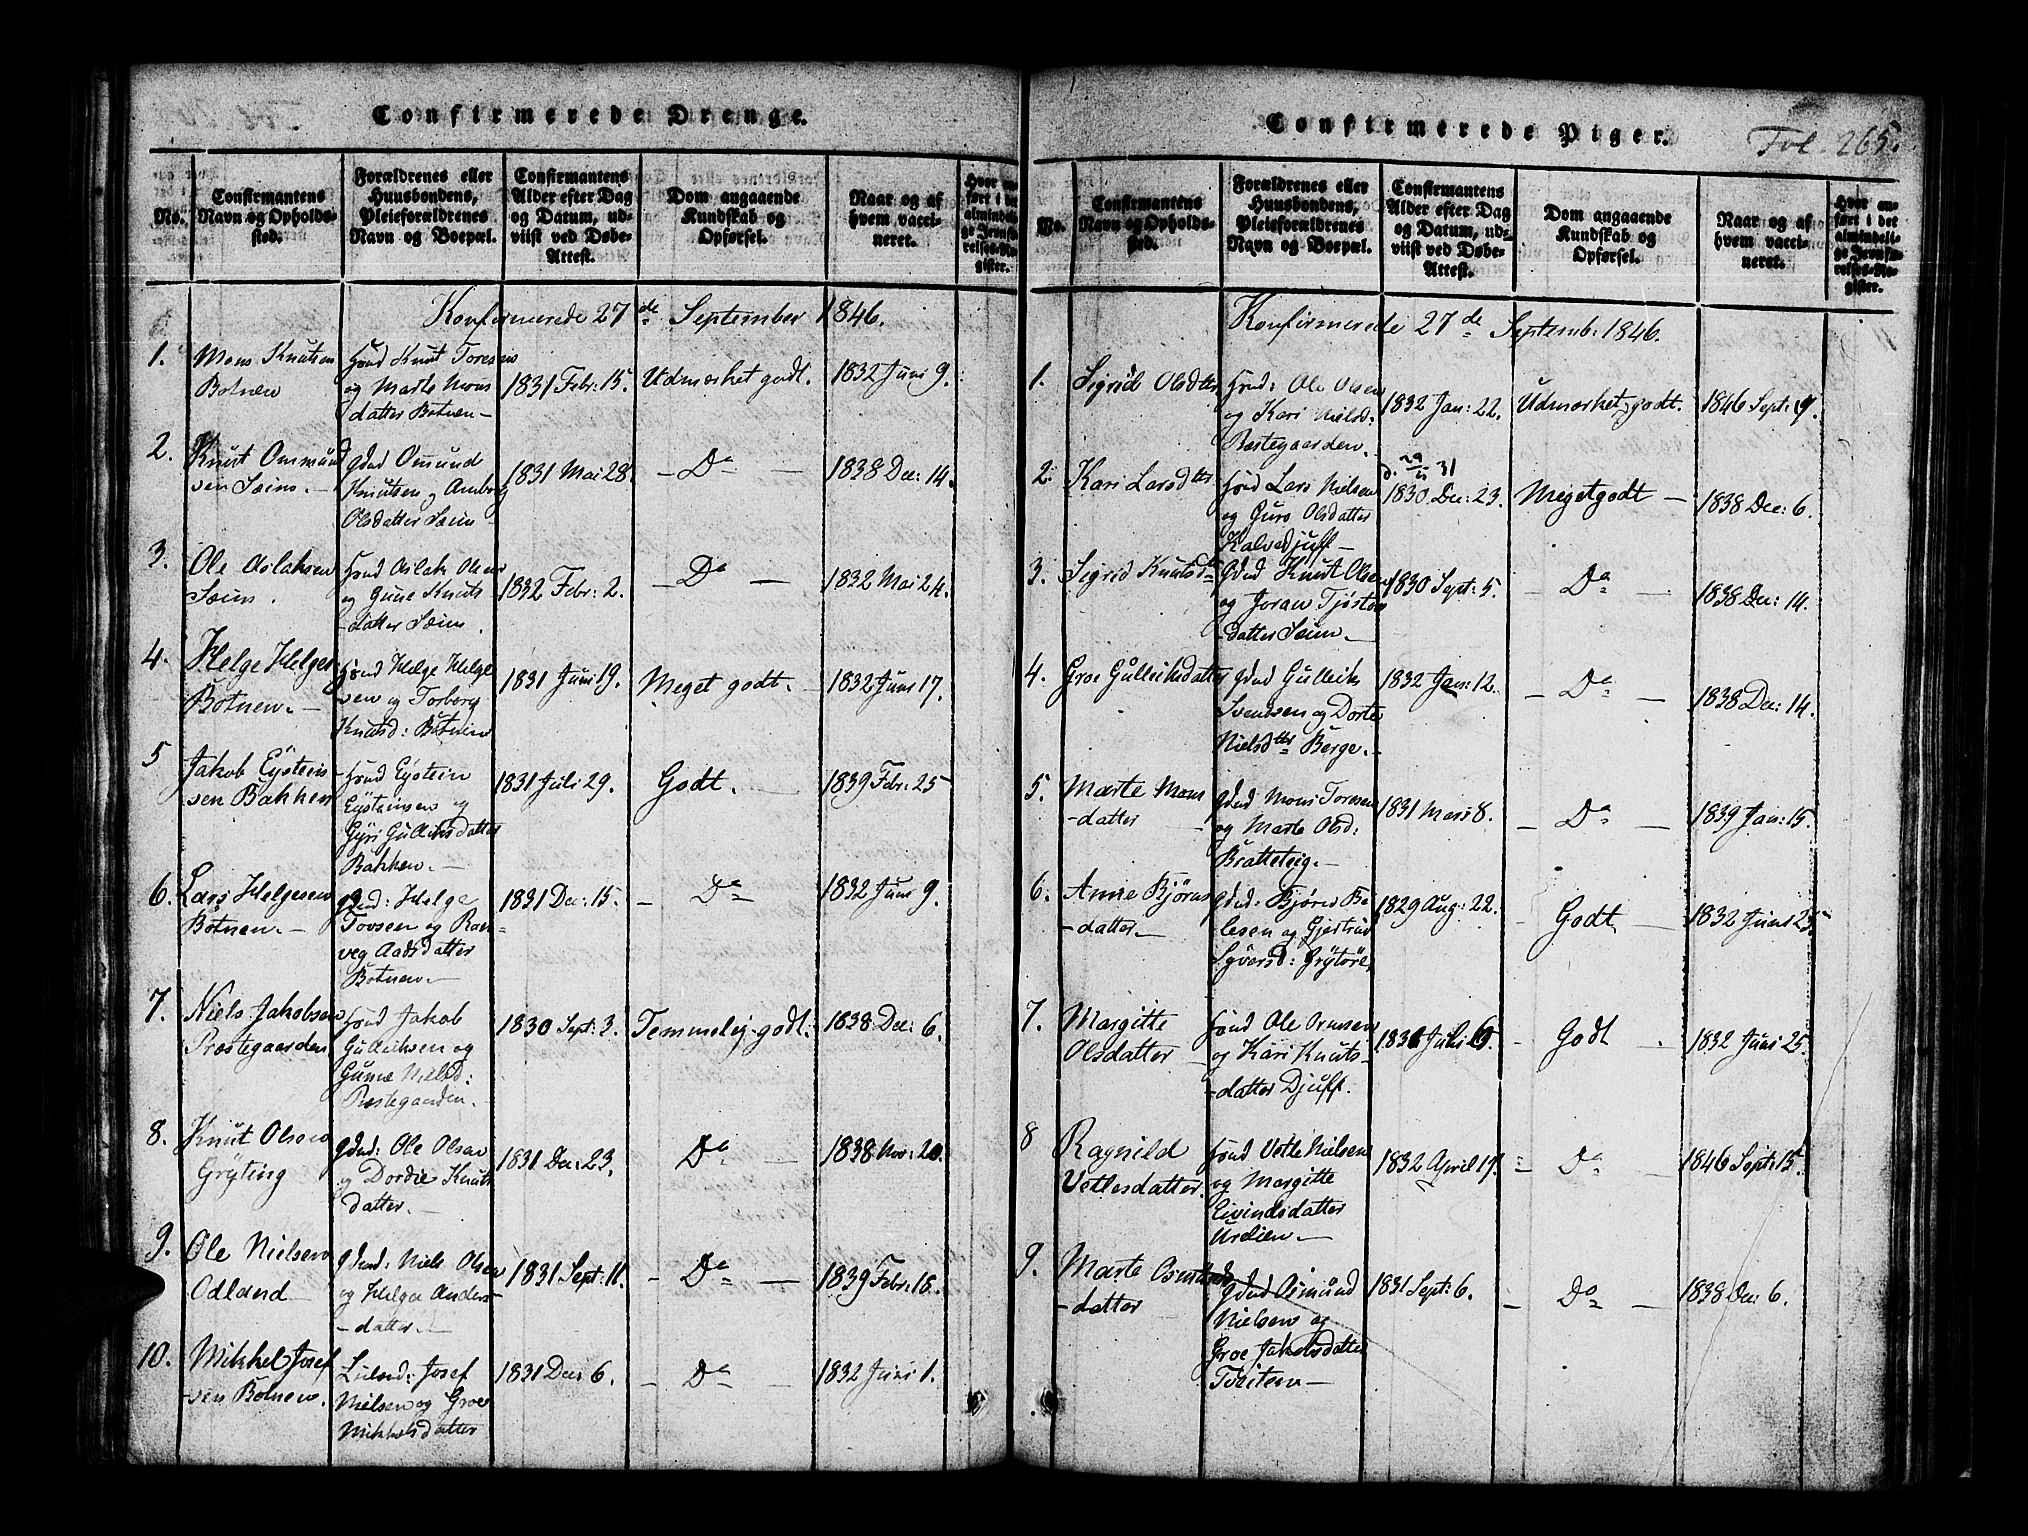 Confirmerede Drenge.
No.
Confirmantens
Navn og Opholds-
sted.
Forældrenes eller
Huusbondens,
Pleieforældrenes
Navn og Boepæl.
Confirmantens
Alder efter Dag
og Datum, ud-
viist ved Døbe-
Attest.
Dom angaaende
Kundskab og
Opførsel.
Naar og af
hvem vacci-
neret.
Hvor an-
ført i det
almindeli-
ge Jevnfø-
relses-Re-
gister.
Konfirmerede 27de September 1846.
1.
Mons Knutsen
Botnen
Hmd Knut Toresen
og Marte Mons
datter Botnen -
1831 Febr: 15.
Udmærket godt.
1832 Juni 9.
2.
Knut Ommund
sen Seim. -
Gmd Omund
Knutsen og Amborg
Olsdatter Seim -
1831 Mai 28.
- Do -
1838 Dec: 14.
3.
Ole Aslaksen
Seim.
Hmd Aslak Olsen
og Gune Knuts
-datter Seim.
1832 Febr: 2.
- Do -
1832 Mai 24.
4.
Helge Helges:
Botnen. -
Hmd Helge Helge
sen og Torborg
Knutsd: Botnen
1831 Juni 19.
Meget godt. -
1832 Juni 17.
5
Jakob Eÿstein
sen Bakken
Hmd Eÿstein
Eÿsteinsen og
Gÿri Gulleiksdatter
Bakken. -
1831 Juli 29.
Godt. -
1839 Febr: 25
6.
Lars Helgesen
Botnen. -
Gmd: Helge
Tovsen og Ran
veg Aadsdatter
Botnen. -
1831 Dec: 15.
- Do -
1832 Juni 9.
7.
Niels Jakobsen
Præstegaarden
Hmd Jakob
Gulleiksen og
Gunne Nielsd:
Præstegaarden.
1830 Sept: 3.
Temmelig godt.
1838 Dec: 6.
8.
Knut Olsen
Grÿting
Gmd: Ole Olsen
og Dordie Knuts
datter. -
1831 Dec: 23.
Do -
1838 Nov: 20.
9.
Ole Nielsen
Odland
Gmd: Niels Olsen
og Helga Anders
-datter. -
1831 Sept: 11.
- Do -
1839 Febr: 18.
10.
Mikkel Josef
-sen Botnen.
Josef
Nielsen og Groe
Mikkelsdatter
1831 Dec: 6.
- Do -
1832 Juni 1.
Confirmerede Piger.
Fol. 265.
No.
Confirmantens
Navn og Opholds-
sted.
Forældrenes eller
Huusbondens,
Pleieforældrenes
Navn og Boepæl.
Confirmantens
Alder efter Dag
og Datum, ud-
viist ved Døbe-
Attest.
Dom angaaende
Kundskab og
Opførsel.
Naar og af
hvem vacci-
neret.
Hvor an-
ført i det
almindeli-
ge Jevnfø-
relses-Re-
gister.
Konfirmerede 27de Septemb: 1846.
1.
Sigrid Olsdtter
Hmd: Ole Olsen
og Kari Nielsd:
Præstegaarden. -
1832 Jan: 22.
Udmærket godt.
1846 Sept: 9.
2.
Kari Larsdtter
Hmd Lars Nielsen
og Guro Olsdatter
Kalvedjuff -
1830 Dec: 23.
Meget godt -
1838 Dec: 6.
3.
Sigrid Knutsdtr
Gmd Knut Olsen
og Joran Tjøstens
-datter Seim. -
1830 Sept: 5.
- Do -
1838 Dec: 14.
4.
Groe Gulleiksdatter
Gmd Gulleik
Svendsen og Dorte
Nielsdtter Berge. -
1832 Jan: 12.
- Do -
1838 Dec: 14.
5.
Marte Mons
-datter
Gmd Mons Toresen
og Marte Olsd:
Bratteteig. -
1831 Mars 8.
- Do -
1839 Jan: 15.
6.
Anne Bjørns
-datter. -
Gmd: Bjørn Bo
lesen og Gjertrud
Sÿversd: Grÿtøre.
1829 Aug: 22.
- Godt -
1832 Juni 25.
7.
Margitte
Olsdatter
Hmd Ole Ormsen
og Kari Knuts
-datter Djuff.
1831 Juli 6.
- Godt .
1832 Juni 25.
8
Ragnild
Vetlesdatter.
Hmd Vetle Nielsen
og Margitte
Eivindsdatter
Urdien. -
1832 April 17.
- Do -
1846 Sept: 15.
9.
Marte Osmunds
-datter
Gmd Osmund
Nielsen og
Groe Jakobsdatter
Tveiten -
1831 Sept: 6.
- Do -
1838 Dec: 6.